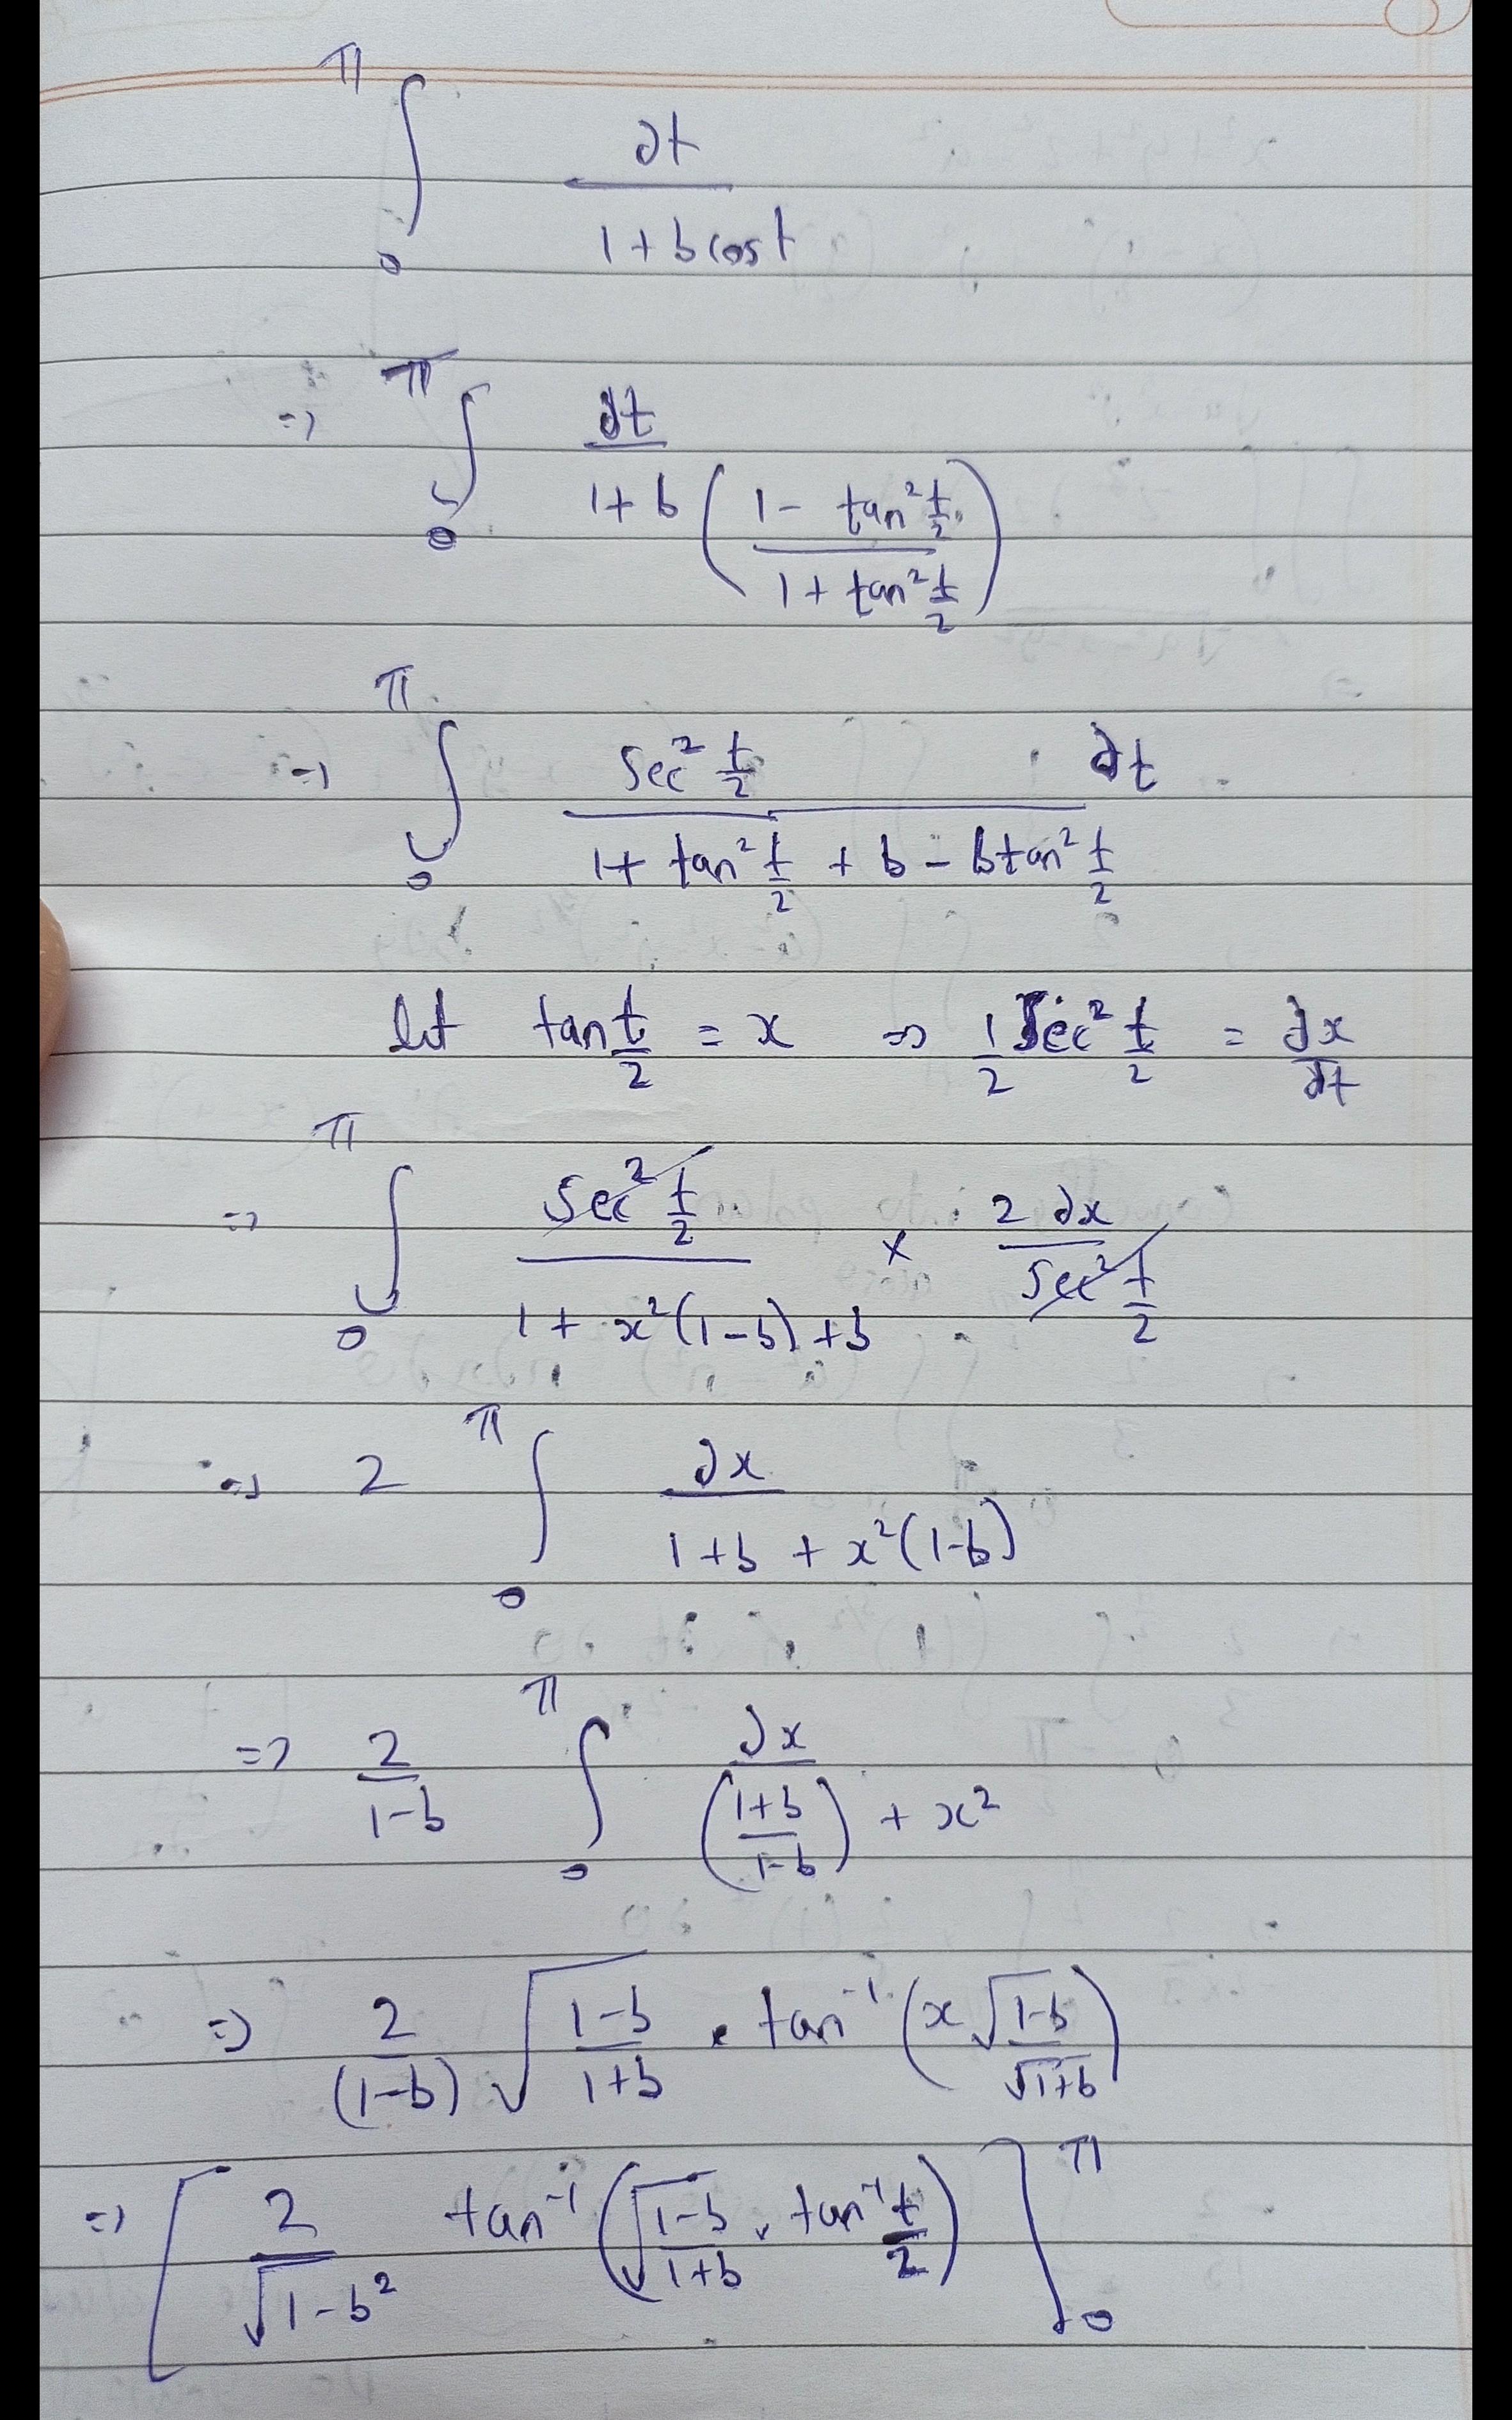 ∫₀^π ∂t / (1 + b cos t)
=> ∫₀^π ∂t / (1 + b ((1 - tan² t/2) / (1 + tan² t/2)))
=> ∫₀^π (sec² t/2) / (1 + tan² t/2 + b - b tan² t/2) ∂t
let tan t/2 = x => 1/2 sec² t/2 = ∂x/∂t
=> ∫₀^π (sec² t/2) / (1 + x²(1-b) + b) × 2∂x / (sec² t/2)
=> 2 ∫₀^π ∂x / (1+b + x²(1-b))
=> 2/(1-b) ∫₀^π ∂x / (((1+b)/(1-b)) + x²)
=> 2/(1-b) √((1-b)/(1+b)) · tan⁻¹(x √(1-b)/√(1+b))
=> [2/√(1-b²) tan⁻¹(√((1-b)/(1+b)) · tan⁻¹ t/2)]₀^π